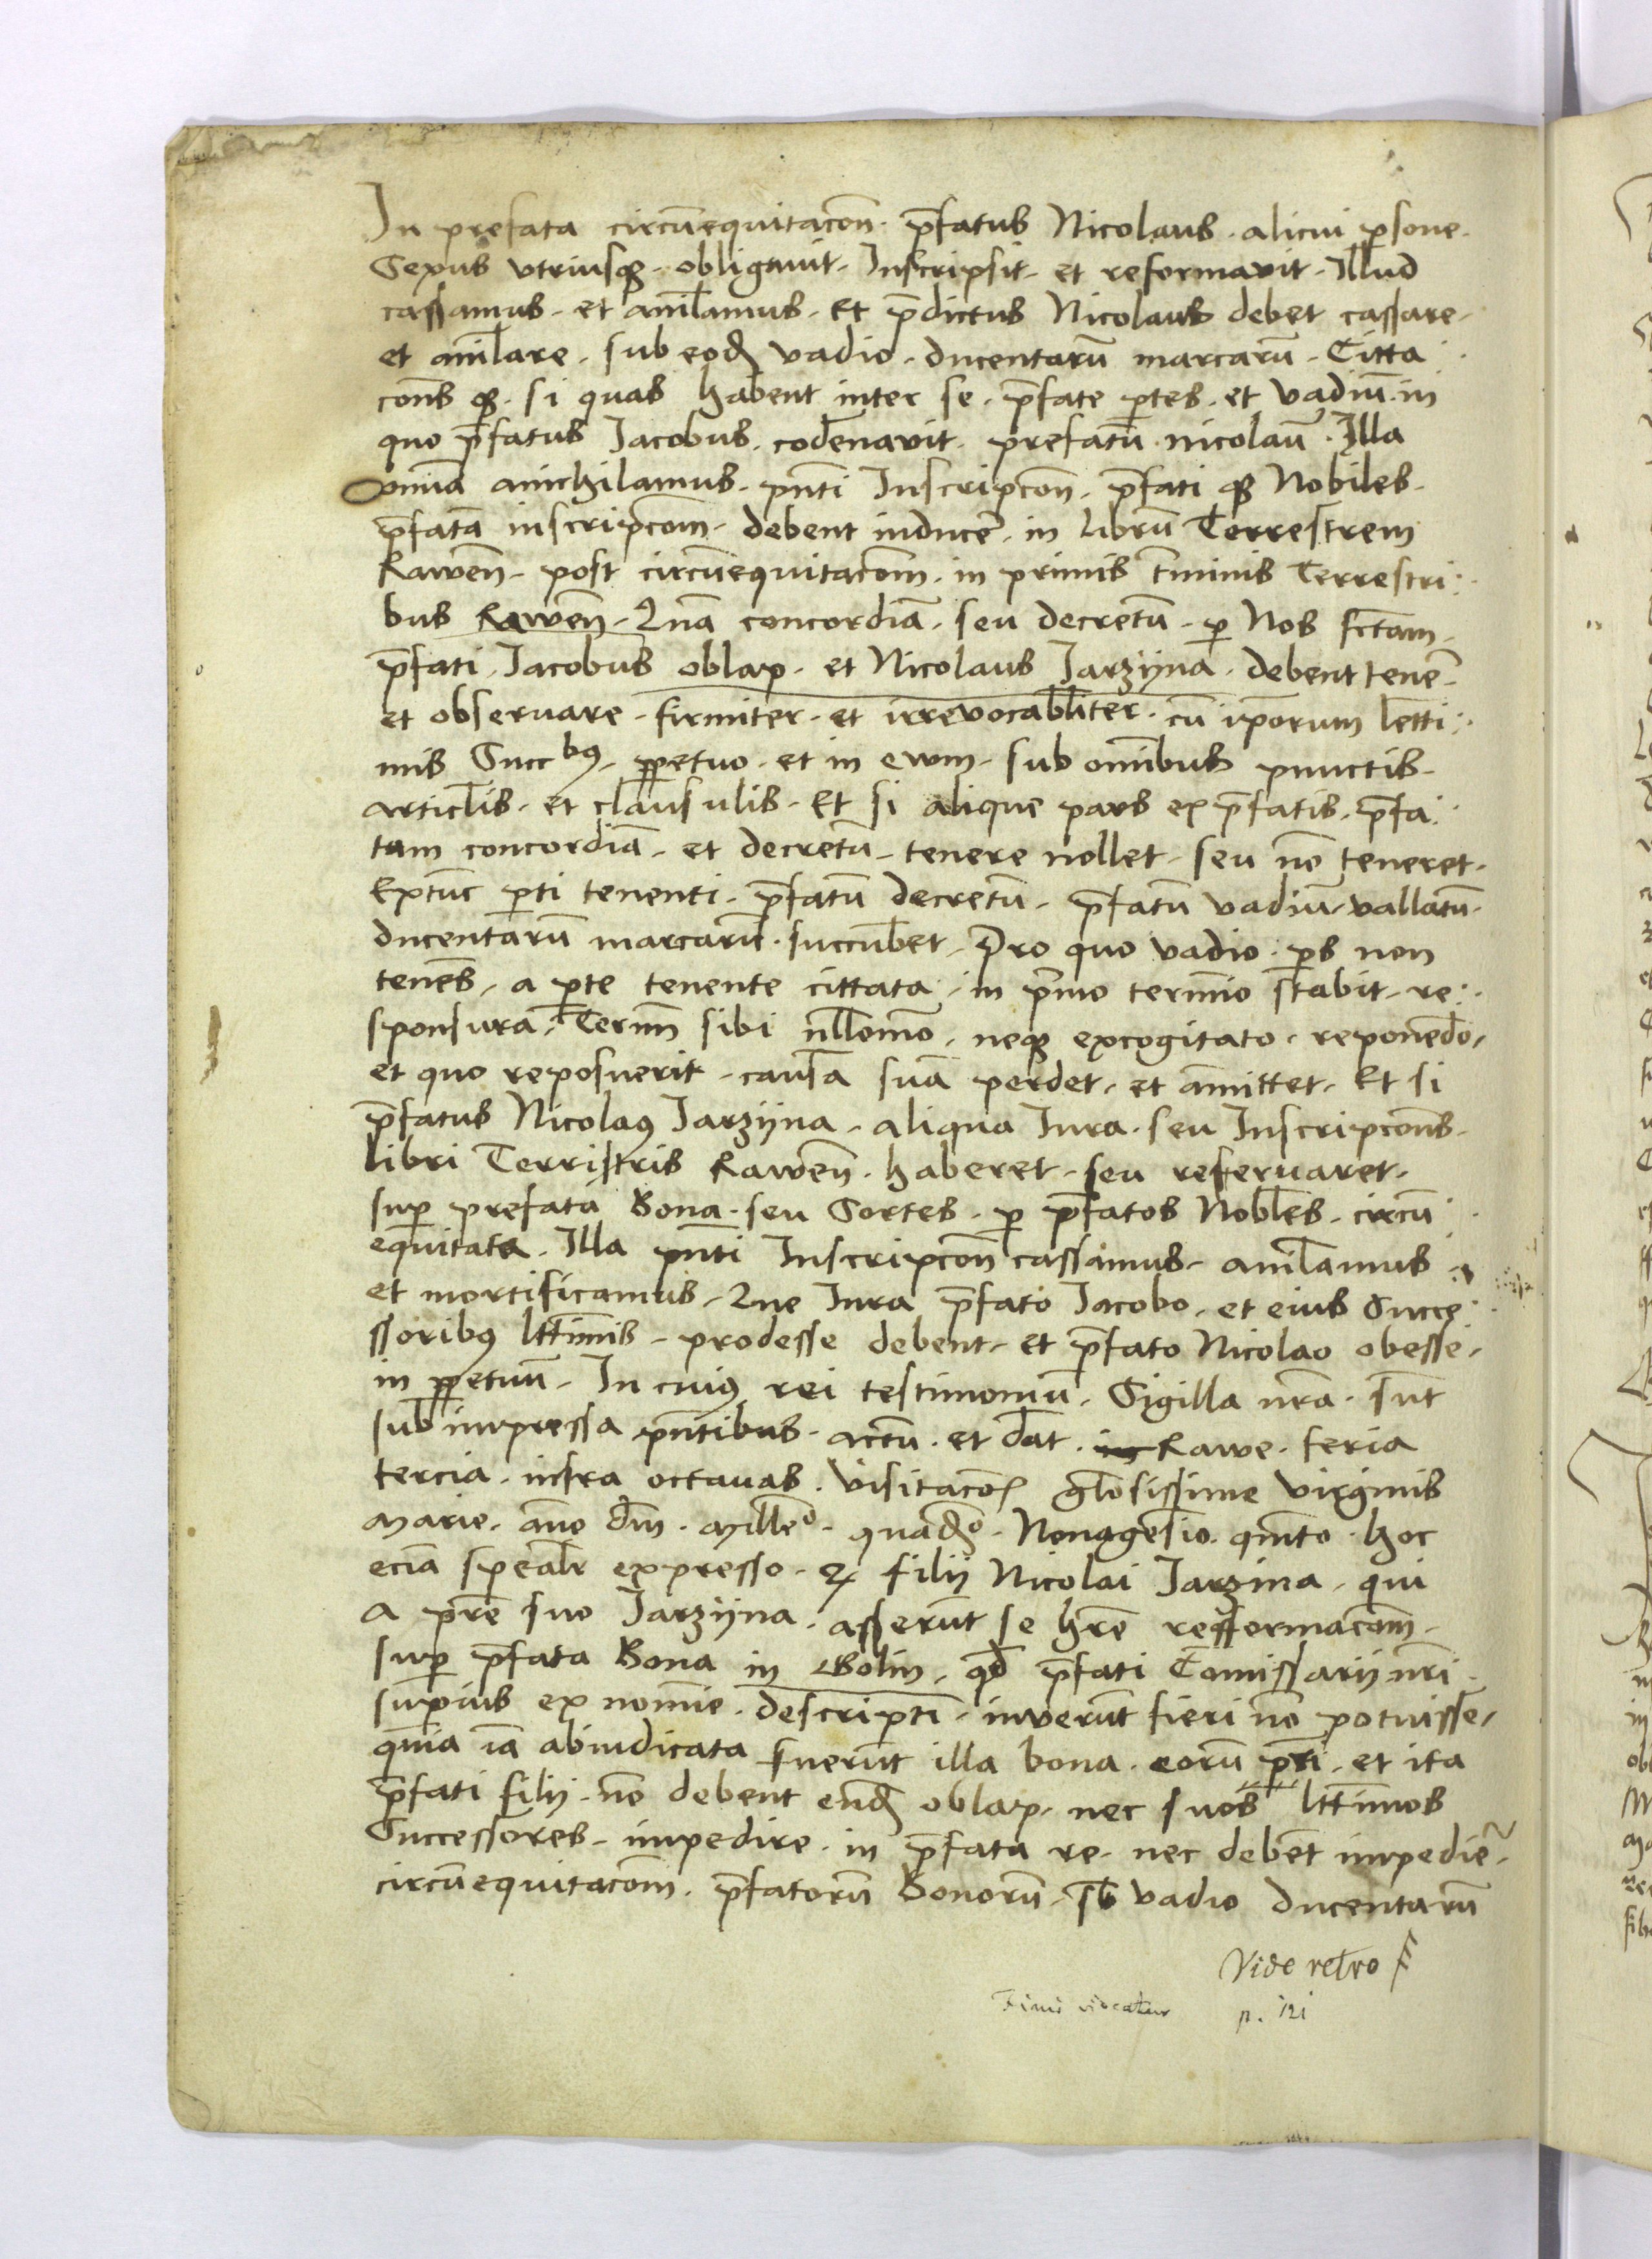 In prefata circūequitacōn. p̄fatus Nicolaus. alicui p̱sone.
Sexus vtriusqꝫ. obligauit. Inscripsit. et reformavit. Illud
cassamus. et anīlamus. Et p̄dictus Nicolaus debet cassare.
et anīlare. sub eodꝫ vadio. ducentarū marcarū. Citta
cōns qꝫ. si quas habent inter se. p̄fate p̱tes. et vadiū in
quo p̄fatus Jacobus. cōdēnavit. prefatū. nicolaū. Illa
omīa ānichilamus. pn̄ti Inscripcōn. p̄fati qꝫ Nobiles.
p̄fatā inscripcōm. debent inducē. in Librū Terrestrem
Rawēn. post circūequitacōm. in primis t̄minis Terrestri:
bus Rawēn. Quā concordiā. seu decretū. ꝑ Nos fc̄tam.
p̄fati. Jacobus oblap. et Nicolaus Jarzijna. debent tenē.
et obseruare. firmiter. et irrevocabl̄iter. cū ip̄orum letti:
mis Succbꝰ. ꝑpetuo. et in ewm. sub omībus punctis.
articl̄is. et clausulis. Et si alique pars ex p̄fatis. p̄fa:
tam concordiā. et decretū. tenere nollet. seu nō teneret.
Extūc p̱ti tenenti. p̄fatū decretū. p̄fatū vadiū. vallatū.
ducentarū marcarū. succūbet. Pro quo vadio. p̱s non
tenēs. a p̱te tenente cittata. in p̄mo termīo stabit. re:
sponsura. Termī sibi nl̄lomō. neqꝫ excogitato. reponēdo.
et quo reposuerit. causā suā perdet. et āmittet. Et si
p̄fatus Nicolaꝰ Jarzijna. aliqua Jura. seu Inscripcōns.
libri Terristris Rawēn. haberet. seu reseruaret.
sup̱ prefata Bona. seu Sortes. ꝑ p̄fatos Nobl̄es. circū
equitata. Illa pn̄ti Inscripcōn cassamus. anīlamus
et mortificamus. Que Jura p̄fato Jacobo. et eius Succe:
ssoribꝰ ltt̄imis. prodesse debent. et p̄fato Nicolao obesse.
in ꝑpetuū. In cuiꝰ rei testimoniū. Sigilla nr̄a. sūt
sub impressa pn̄tibus. actū. et dāt. in Rawe. feria
tercia. infra octauas. Visitacōꝭ gl̄osissime virginis
Marie. āno dm̄. Mill̄eo. quadꝫo. Nonagesīo. qn̄to. hoc
eciā speālr expresso. qꝫ filij Nicolai Jarzina. qui
a pr̄e suo Jarzijna. asserūt se hr̄e refformacōm.
sup̱ p̄fata Bona in Bolin. qd̄ p̄fati Comissarij nr̄i
sup̱ius ex nomīe. descripti. inverūt fieri nō potuisse.
quia iā abiudicata fuerūt illa bona. eorū p̱ri. et ita
p̄fati filij. nō debent eūdꝫ oblap. nec suos ltt̄imos
Successores. impedire. in p̄fata re. nec debēt impediē.
circūequitacōm. p̄fatorū Bonorū. sb̄ vadio ducentarū
Vide retro
p. 121